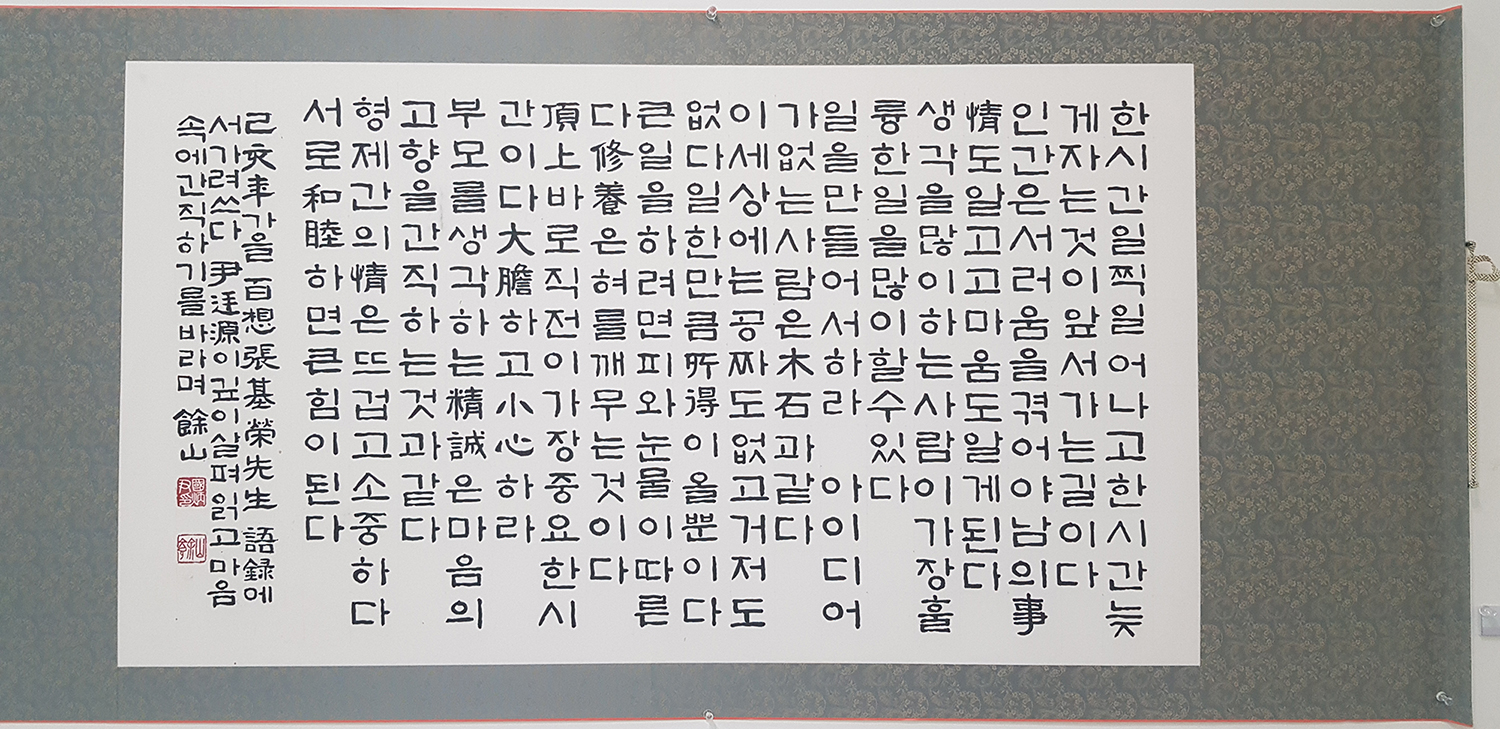 한시간일찍일어나고한시간늦
게자는것이앞서가는길이다
인간은서러움을겪어야남의事
情도알고고마움도알게된다
생각을많이하는사람이가장훌
륭한일을많이할수있다
일을만들어서하라 아이디어
가없는사람은木石과같다
이세상에는공짜도없고거저도
없다일한만큼所得이올뿐이다
큰일을하려면피와눈물이따른
다修養은혀를깨무는것이다
頂上바로직전이가장중요한시
간이다大膽하고小心하라
부모를생각하는精誠은마음의
고향을간직하는것과같다
형제간의情은뜨겁고소중하다
서로和睦하면큰힘이된다
己亥年가을 百想張基榮先生 語録에
서가려쓰다 尹廷源이깊이살펴읽고마음
속에간직하기를바라며 餘山